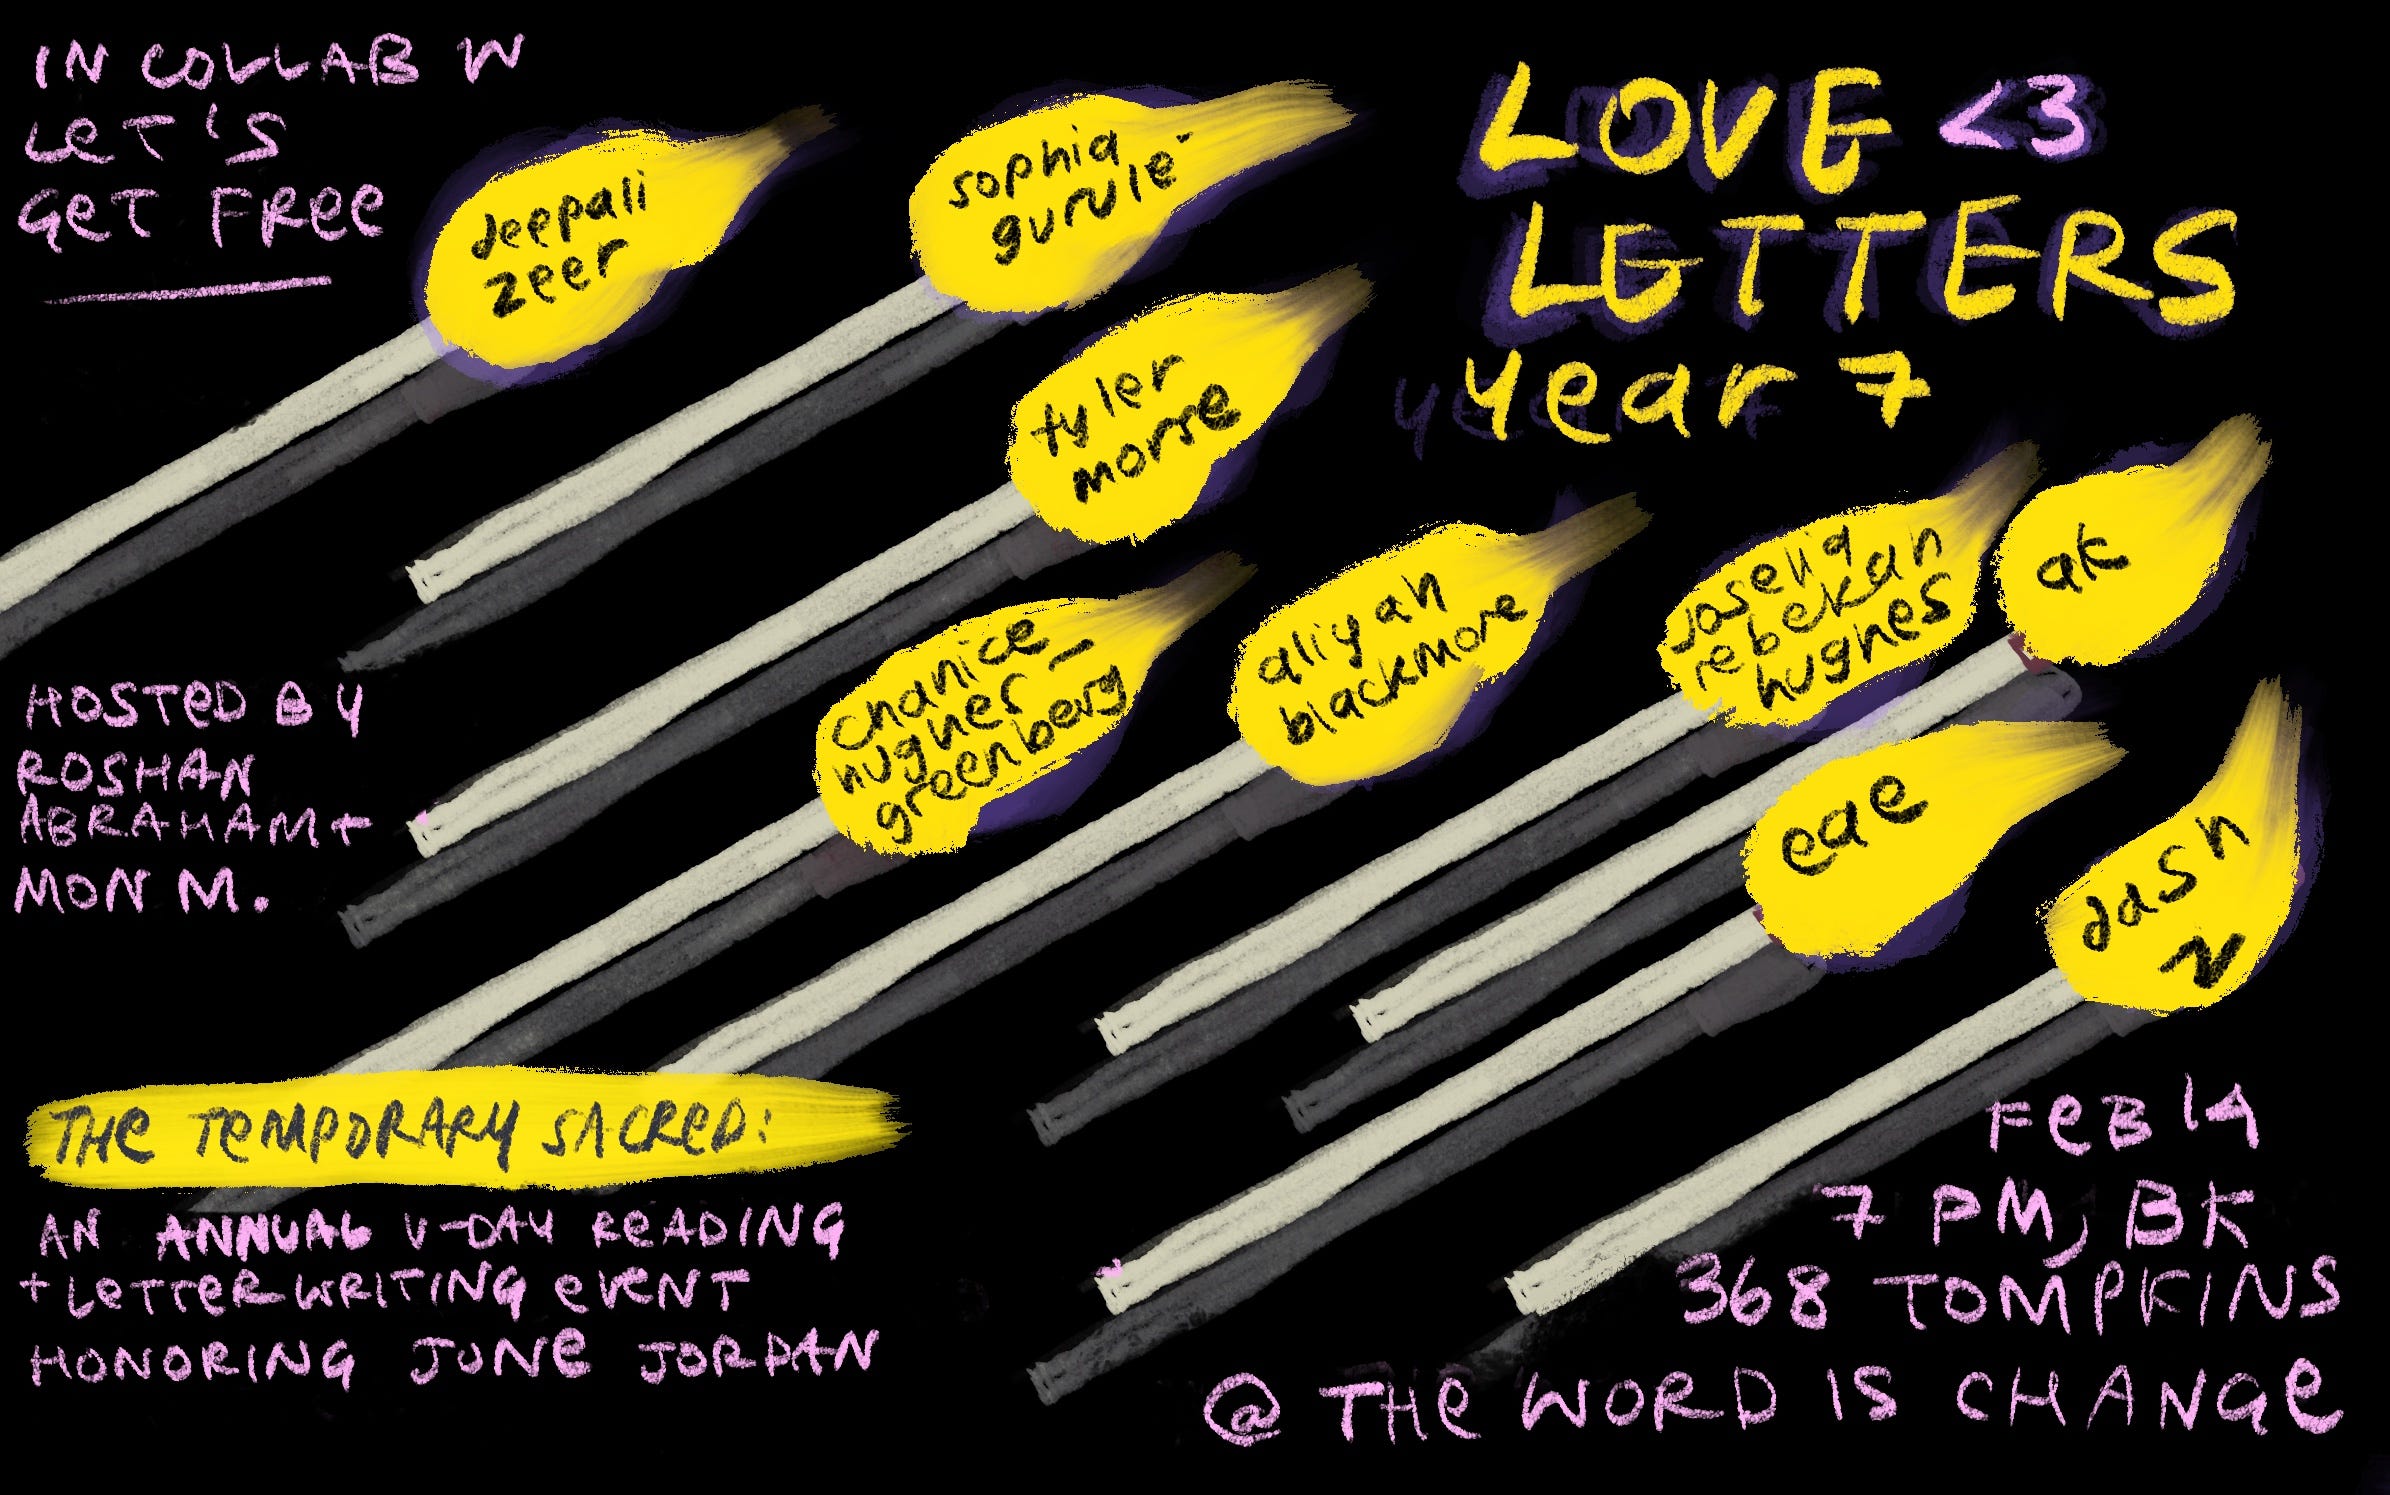 IN COLLAB W
LET'S
GET FREE
LOVE <3
LETTERS
year 7
deepali
zeer
sophia
gurule
tyler
morse
chanice
hughes-
greenberg
aliyah
blackmore
joselia
rebekah
hughes
ak
eae
dash
z
HOSTED BY
ROSHAN
ABRAHAM +
MON M.
THE TEMPORARY SACRED:
AN ANNUAL V-DAY READING
+ LETTER WRITING EVENT
HONORING JUNE JORDAN
FEB 14
7 PM, BK
368 TOMPKINS
@ THE WORD IS CHANGE